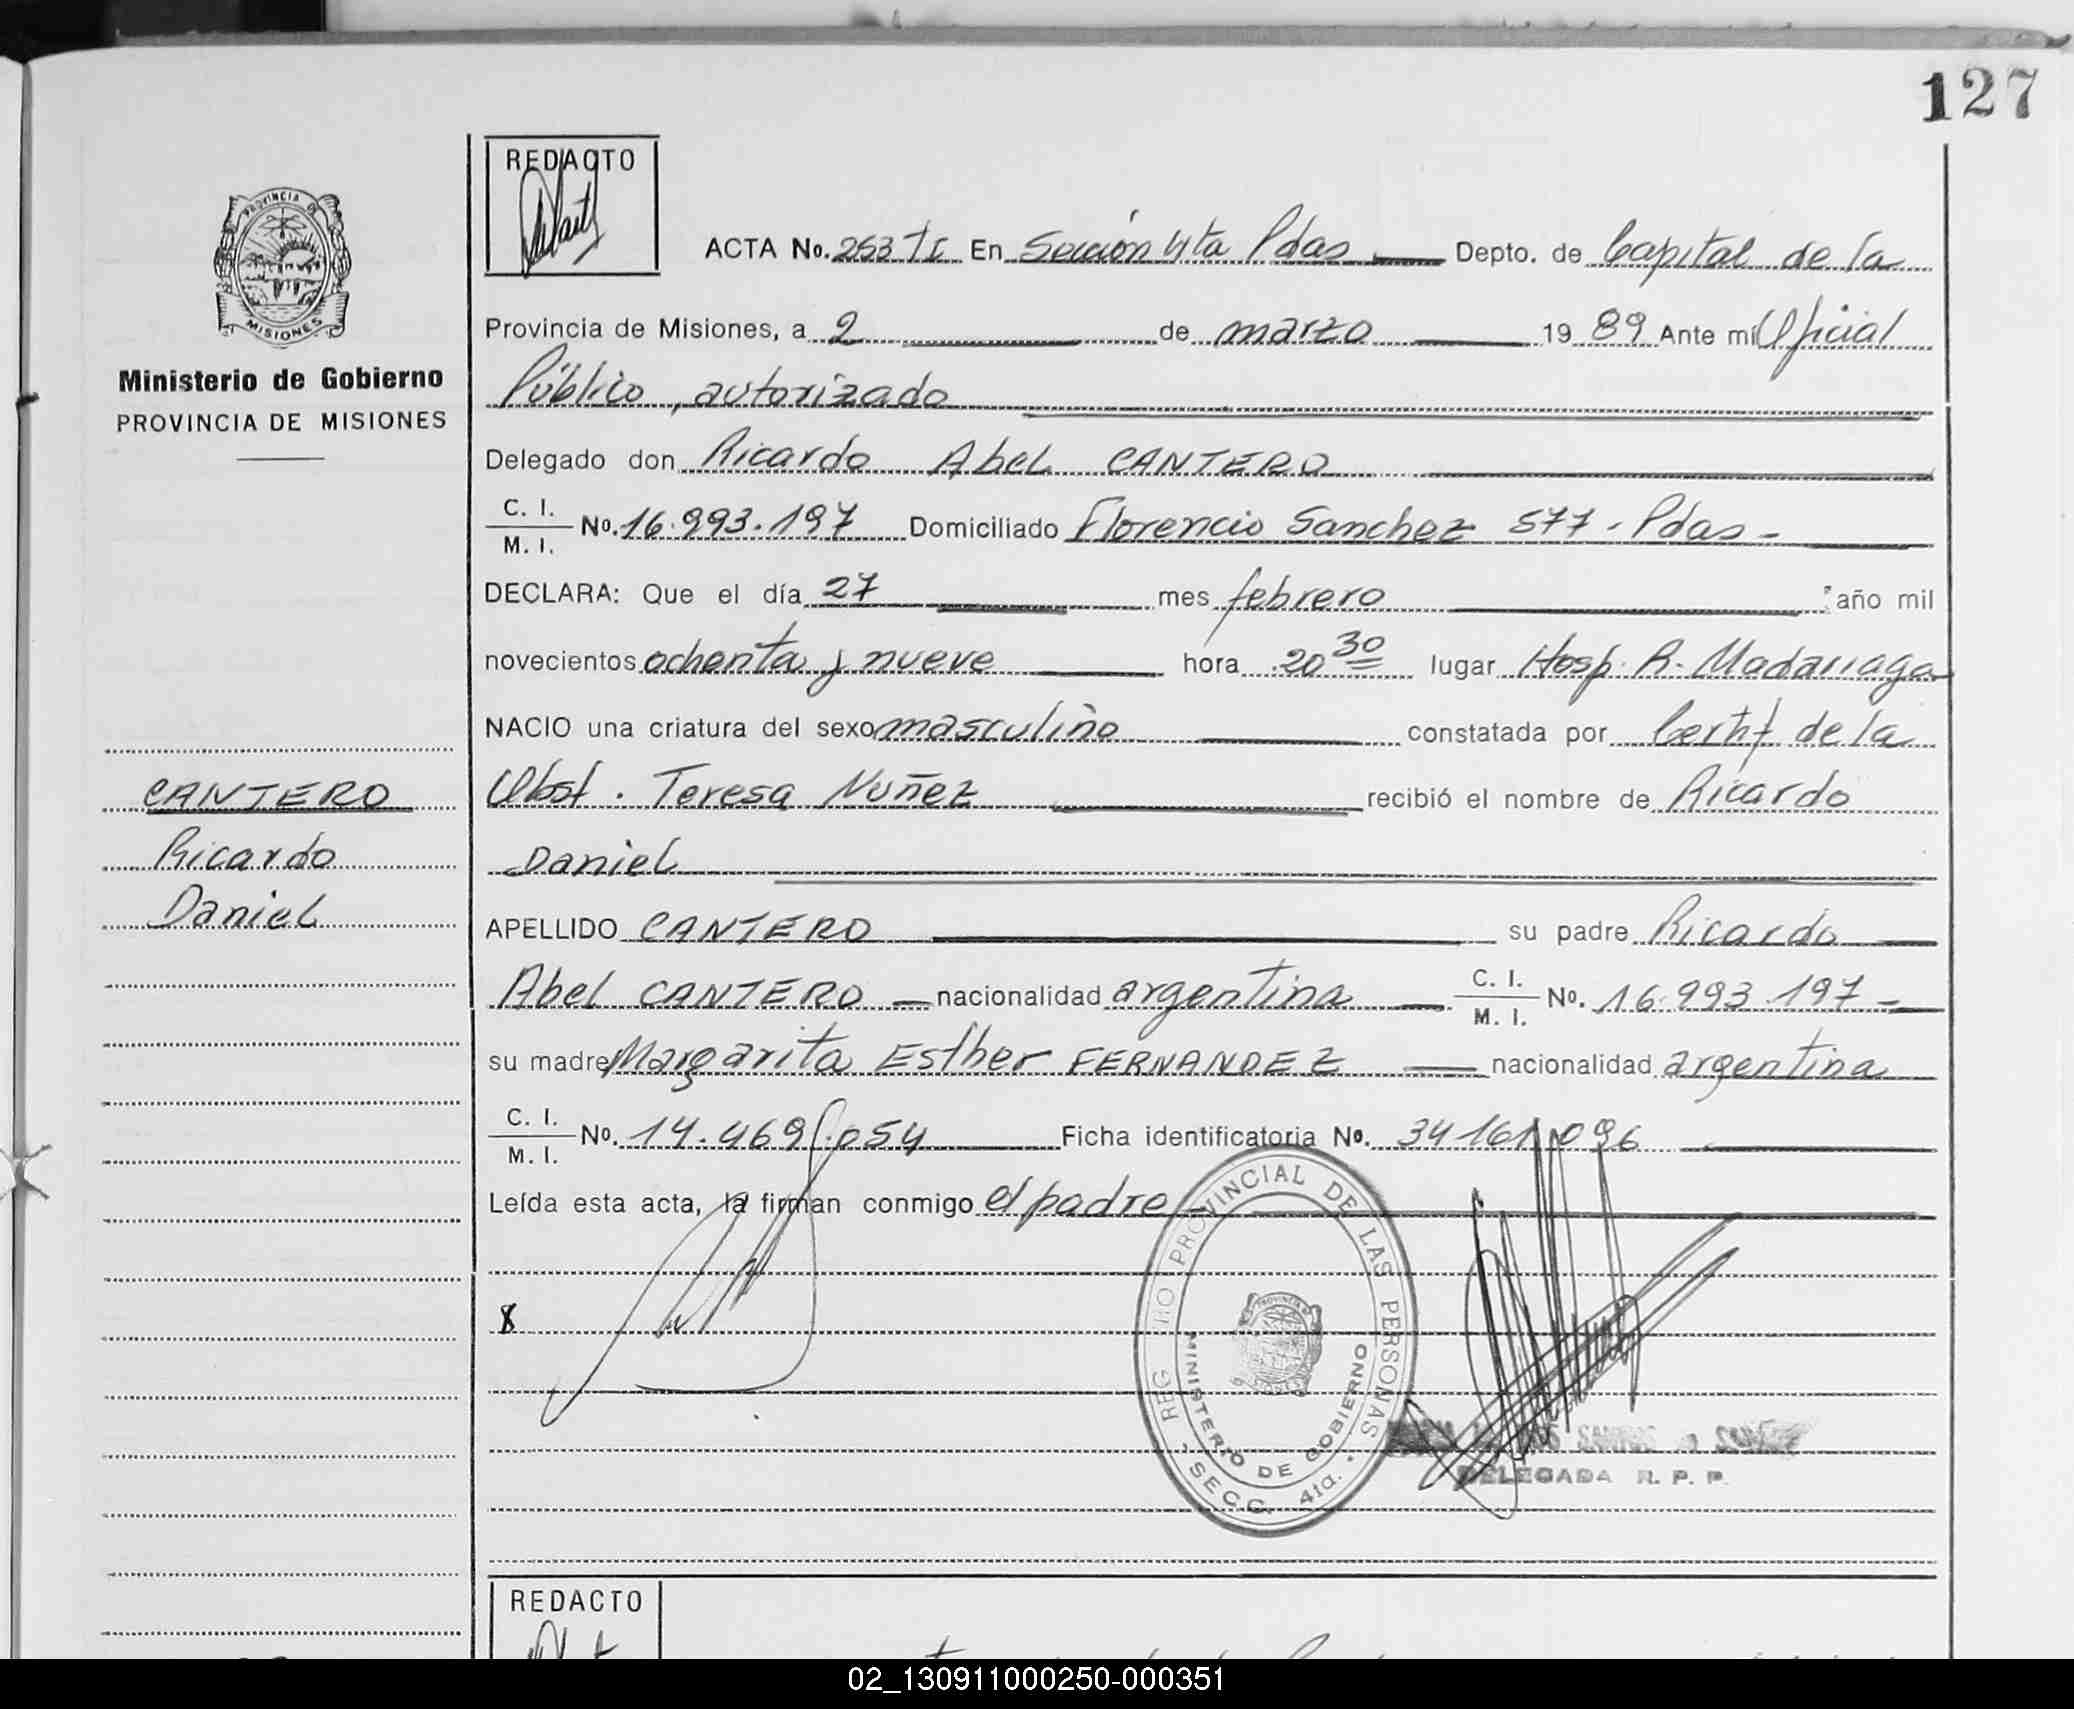 127
REDACTO
PROVINCIA DE
MISIONES
Ministerio de Gobierno
PROVINCIA DE MISIONES
CANTERO
Ricardo
Daniel
ACTA No. 253 TI En Sección 4ta Pdas Depto. de Capital de la
Provincia de Misiones, a 2 de marzo 1989 Ante mi Oficial
Público, autorizado
Delegado don Ricardo Abel CANTERO
C. I.
M. I. No. 16.993.197 Domiciliado Florencio Sanchez 577 - Pdas -
DECLARA: Que el día 27 mes febrero año mil
novecientos ochenta y nueve hora 20 30 lugar Hosp. R. Madariaga
NACIO una criatura del sexo masculino constatada por Certif de la
Obst. Teresa Nuñez recibió el nombre de Ricardo
Daniel
APELLIDO CANTERO su padre Ricardo
Abel CANTERO nacionalidad argentina C. I.
M. I. No. 16.993.197 -
su madre Margarita Esther FERNANDEZ nacionalidad argentina
C. I.
M. I. No. 14.469.054 Ficha identificatoria No. 34161096
Leída esta acta, la firman conmigo el padre
REGISTRO PROVINCIAL DE LAS PERSONAS
MINISTERIO DE GOBIERNO
SECC. 4ta.
DOS SANTOS
DELEGADA R. P. P.
REDACTO
02_130911000250-000351